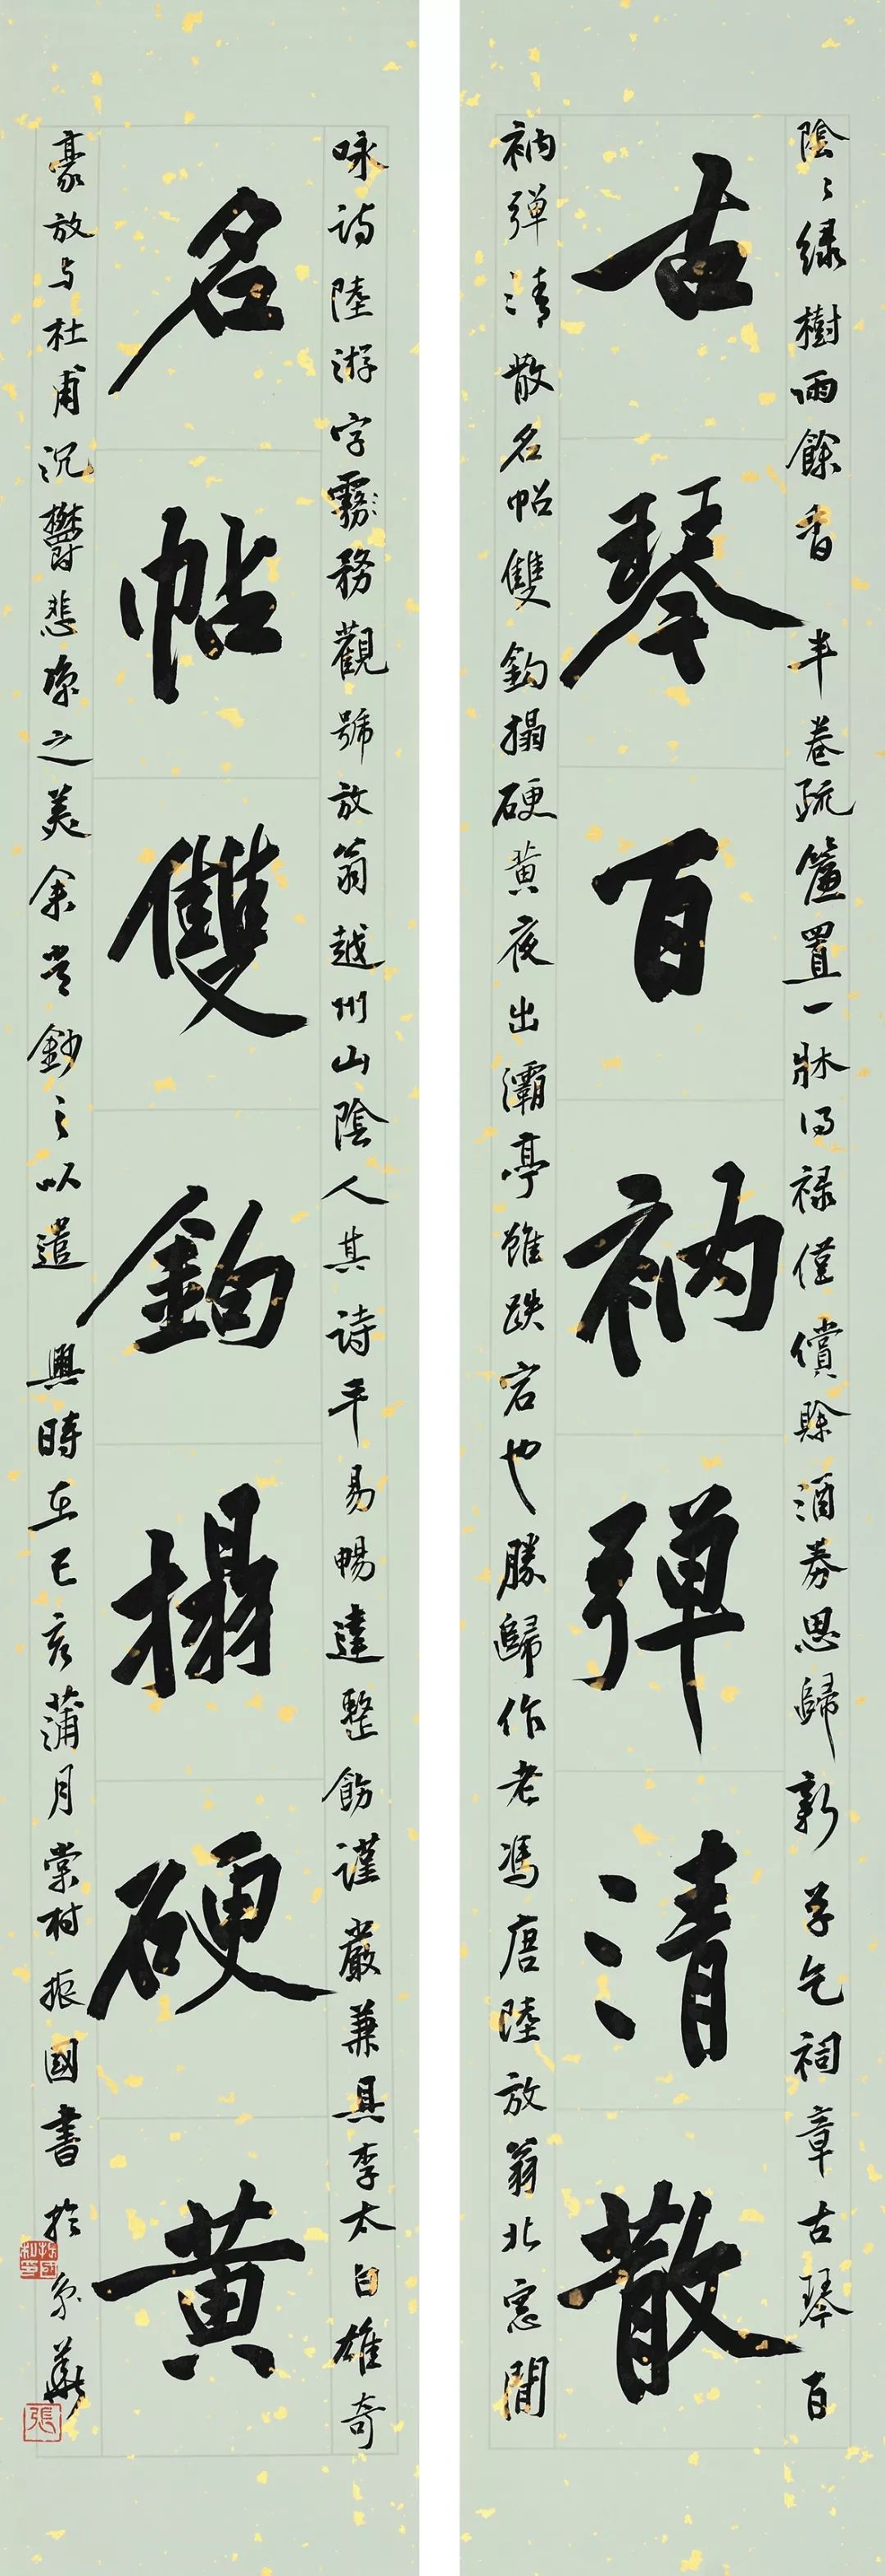 陰〻緑樹雨餘香半卷疏簾置一牀得禄僅償賒酒券思歸新学乞祠章古琴百
古琴百衲彈清散
衲彈清散名帖雙鈎搨硬黄夜出灞亭雖跌宕也勝歸作老馮唐陸放翁北窻閒
咏詩陸游字霧務觀號放翁越州山陰人其詩平易暢達整飭謹嚴兼具李太白雄奇
名帖雙鈎搨硬黄
豪放与杜甫沉鬱悲凉之美余嘗鈔之以遣興時在己亥蒲月棠村振國書於京華
張